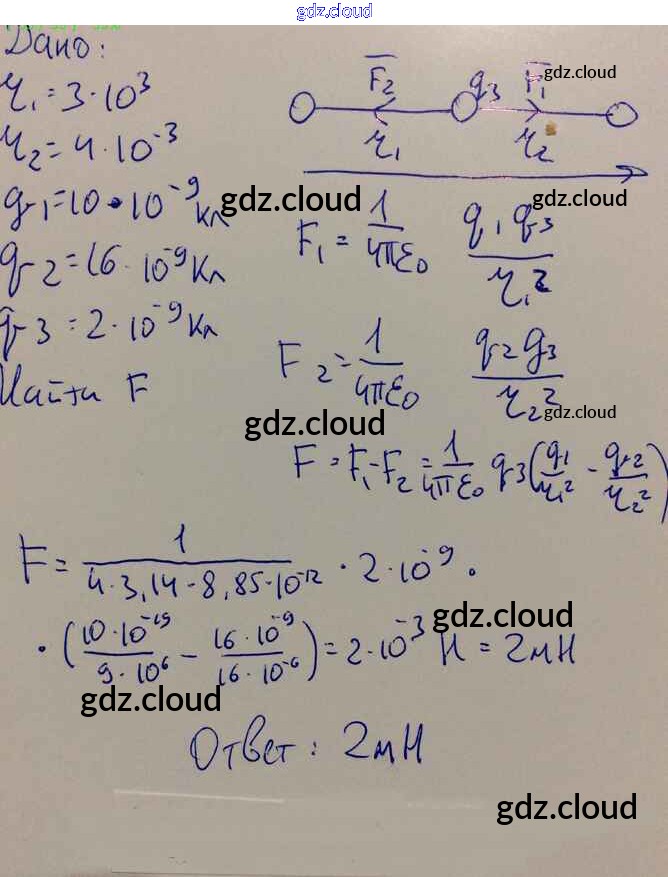 gdz.cloud
Дано:
r₁ = 3·10³
r₂ = 4·10⁻³
q₁ = 10·10⁻⁹ Кл
q₂ = 16·10⁻⁹ Кл
q₃ = 2·10⁻⁹ Кл
Найти F
F₂ q₃ F₁
gdz.cloud
r₁ r₂
gdz.cloud
gdz.cloud
F₁ = 1/4πε₀ q₁q₃/r₁²
F₂ = 1/4πε₀ q₂q₃/r₂²
gdz.cloud
gdz.cloud
F = F₁ - F₂ = 1/4πε₀ q₃(q₁/r₁² - q₂/r₂²)
F = 1/4·3,14·8,85·10⁻¹² · 2·10⁻⁹ ·
gdz.cloud
· (10·10⁻¹⁹/9·10⁶ - 16·10⁻⁹/16·10⁻⁶) = 2·10⁻³ Н = 2мН
gdz.cloud
Ответ: 2мН
gdz.cloud